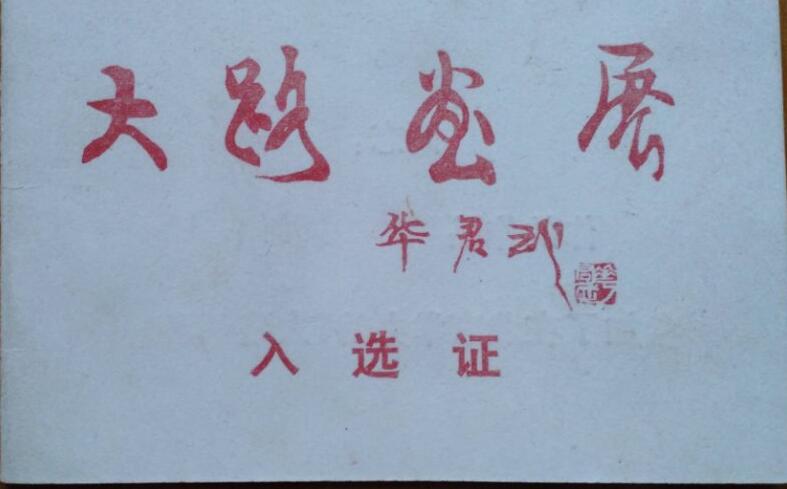 大路画展
华君武
入选证